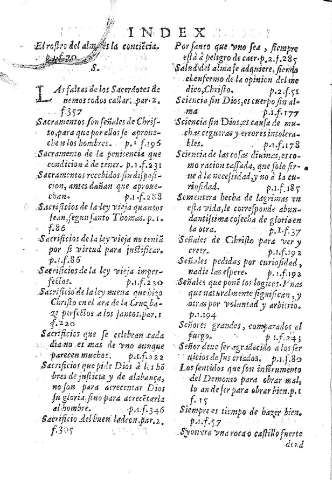 INDEX
El rostro del alma es la conciēcia.
p.1.f.70
S.
LAs faltas de los Sacerdotes de
uemos todos callar. par. 2.
f.357
Sacramentos son señales de Chris-
to, para que por ellos se aproue-
chen los hombres. p.1 f.196
Sacramento de la penitencia que
condicion à de tener. p.2.f.431
Sacramentos recebidos sin disposi-
cion, antes dañan que aproue-
chan. p.1.f.288
Sacrificios de la ley vieja quantos
fean, segun santo Thomas. p.1.
f.86
Sacrificios de la ley vieja no teniã
por si virtud para justificar.
p.1.f.86
Sacrificios de la ley vieja imper-
fectos. p.1.f.230
Sacrificio de la ley nueua que hizo
Christo en el ara de la Cruz, ha-
ze perfetos a los santos. par.1.
f.220
Sacrificios que se celebran cada
dia no es mas de vno aunque
parecen muchos. p.1.f.222
Sacrificios que pide Dios à los hõ
bres de justicia y de alabança,
no son para acrecentar Dios
su gloria, sino para acrecētarla
al hombre. p.1.f.346
Sacrificio del buen ladron. par. 2.
f.305
Por santo que vno sea, siempre
està à peligro de caer. p.2.f.285
Salud del alma se adquiere, siendo
el enfermo de la opinion del me
dico, Christo. p.2.f.51
Sciencia sin Dios, es cuerpo sin al
ma p.1.f.177
Sciencia sin Dios, es causa de mu-
chas cegueras y errores intolera-
bles. p.1.f.178
Sciencia de las cosas diuinas, es co-
mo racion tassada, que solo sir-
ue à la necessidad, y no à la cu-
riosidad. p.1.f.185
Sementera hecha de lagrimas en
esta vida, le corresponde abun-
dantissima cosecha de gloria en
la otra. p.1.f.37
Señales de Christo para ver y
creer. p.1.f.192
Señales pedidas por curiosidad,
nadie las espere. p.1.f.192
Señales que ponē los logicos. Vnas
que naturalmente significan, y
otras por voluntad y arbitrio.
p.1.194
Señores grandes, comparados al
fuego. p.1.f.245
Señor deue ser agradecido a los ser
uicios de sus criados. p.1.f.80
Los sentidos que son instrumento
del Demonio para obrar mal,
lo an de ser para obrar bien. p.1
f.15
Siempre es tiempo de hazer bien.
p.1.f.57
Syon era vna roca o castillo fuerte